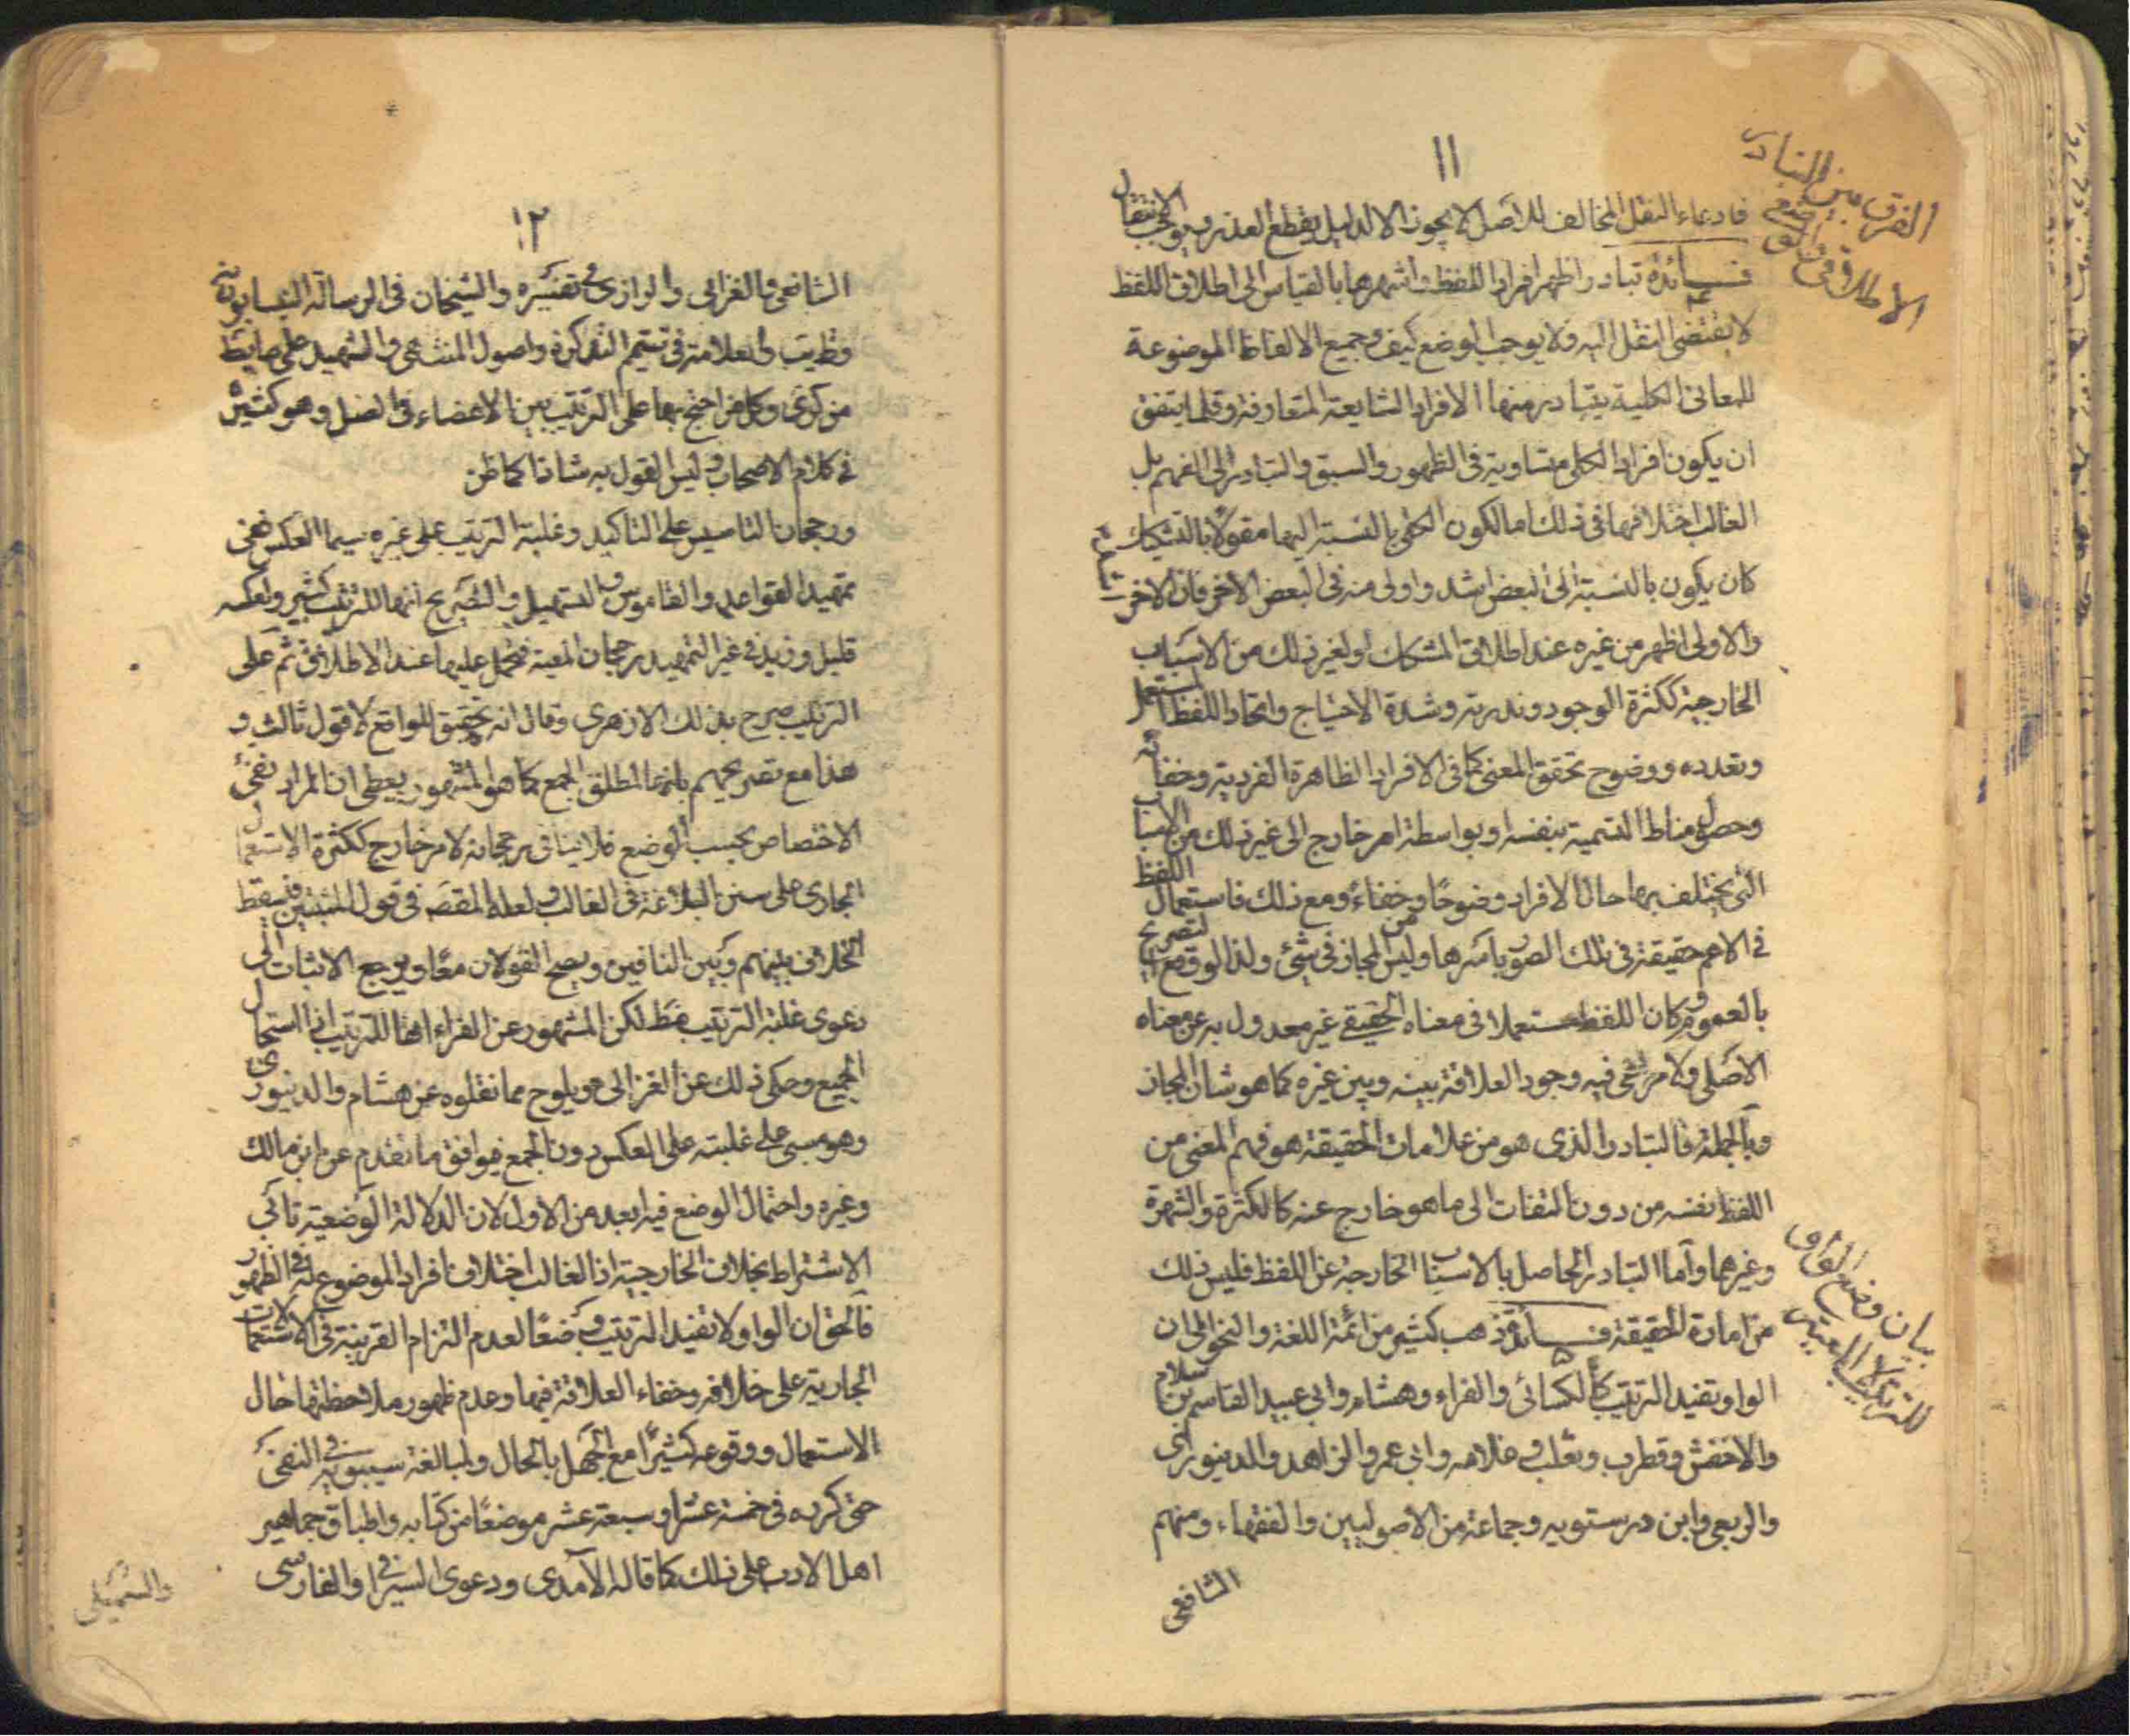 ١١
الفرق بين التبادر
الاطلاقي
فادعاء النقل المخالف للاصل لا يجوز الا لدليل يقطع العذر ويوجب الانتقال
فائدة تبادر اظهر افراد اللفظ واشهرها بالقياس الى اطلاق اللفظ
لا يقتضى النقل اليه ولا يوجب الوضع كيف وجميع الالفاظ الموضوعة
للمعانى الكلية يتبادر منها الافراد الشايعة المتعارفة وقلما يتفق
ان يكون افراد الكلى متساوية فى الظهور والسبق والتبادر الى الفهم بل
الغالب اختلافها فى ذلك اما لكون الكلى بالنسبة اليها مقولا بالتشكيك
كان يكون بالنسبة الى البعض اشد واولى منه فى البعض الاخر فان الاخر
والاولى اظهر من غيره عند اطلاق المشكك او لغير ذلك من الاسباب
الخارجية ككثرة الوجود وندرته وشدة الاحتياج واتحاد اللفظ المستعمل
وتعدده ووضوح تحقق المعنى كما فى الافراد الظاهرة الفردية وخفائه
وحصول مناط التسمية بنفسه او بواسطة امر خارج الى غير ذلك من الاسباب
التى يختلف بها حال الافراد وضوحًا وخفاءً ومع ذلك فاستعمال اللفظ
فى الاعم حقيقة فى تلك الصور باسرها وليس من المجاز فى شئ ولذا لو وقع التصريح
بالعموم كان اللفظ مستعملا فى معناه الحقيقى غير معدول به عن معناه
الاصلى ولا مرعى فيه وجود العلاقة بينه وبين غيره كما هو شان المجاز
وبالجملة فالتبادر الذى هو من علامات الحقيقة هو فهم المعنى من
اللفظ نفسه من دون التفات الى ما هو خارج عنه كالكثرة والشهرة
وغيرهما وأما التبادر الحاصل بالاسباب الخارجة عن اللفظ فليس ذلك
من امارة الحقيقة فائدة ذهب كثير من ائمة اللغة والنحو الى ان
الواو تفيد الترتيب كالكسائى والفراء وهشام وابى عبيد القاسم بن سلام
والاخفش وقطرب وثعلب وغلامه وابى عمر الزاهد والدينورى
والربعى وابن درستويه وجماعة من الاصوليين والفقهاء ومنهم
الشافعى
بيان وضع الواو
للترتيب
١٢
الشافعى والغزالى والرازى فى تفسيره والشيخان فى الرسالة
والعلامة فى تتميم التذكرة واصول المنتهى والشهيد على
وكل من احتج بها على الترتيب بين الاعضاء فى الغسل وهو كثير
فى كلام الاصحاب وليس القول به شاذا كما ظن
ورجحان التاسيس على التاكيد وغلبة الترتيب على غيره سيما العكس ففى
تمهيد القواعد والقاموس والتسهيل والتصريح انها للترتيب كثير ولعكسه
قليل وزيد فى غير التمهيد رجحان المعية فتحمل عليها عند الاطلاق ثم على
الترتيب صرح بذلك الازهرى وقال انه تحقيق للواقع لا قول ثالث و
هذا مع تصريحهم بانها لمطلق الجمع كما هو المشهور يعطى ان المراد نفى
الاختصاص بحسب الوضع فلا ينافى رجحانه لامر خارج ككثرة الاستعمال
الجارى على سنن البلاغة فى الغالب ولعله المقصد فى قول المثبتين فيسقط
الخلاف بينهم وبين النافين ويصح القولان معًا ويرجع الاثبات الى
دعوى غلبة الترتيب فقط لكن المشهور عن الفراء انها للترتيب اذا استحال
الجمع وحكى ذلك عن الغزالى ويلوح مما نقلوه عن هشام والدينورى
وهو مبنى على غلبته على العكس دون الجمع فيوافق ما تقدم عن ابن مالك
وغيره واحتمال الوضع فيه ابعد من الاول لان الدلالة الوضعية تأبى
الاشتراط بخلاف الخارجية اذ الغالب اختلاف افراد الموضوع له فى الظهور
فالحق ان الواو لا تفيد الترتيب وضعًا لعدم التزام القرينة فى الاستعمالات
الجارية على خلافه وخفاء العلاقة فيها وعدم ظهور ملاحظتها حال
الاستعمال ووقوعه كثيرًا مع الجهل بالحال ولمبالغة سيبويه فى النفى
حتى كرره فى خمسة عشر او سبعة عشر موضعًا من كتابه واطباق جماهير
اهل الادب على ذلك كما قاله الآمدى ودعوى السيرافى والفارسى
والسهيلى